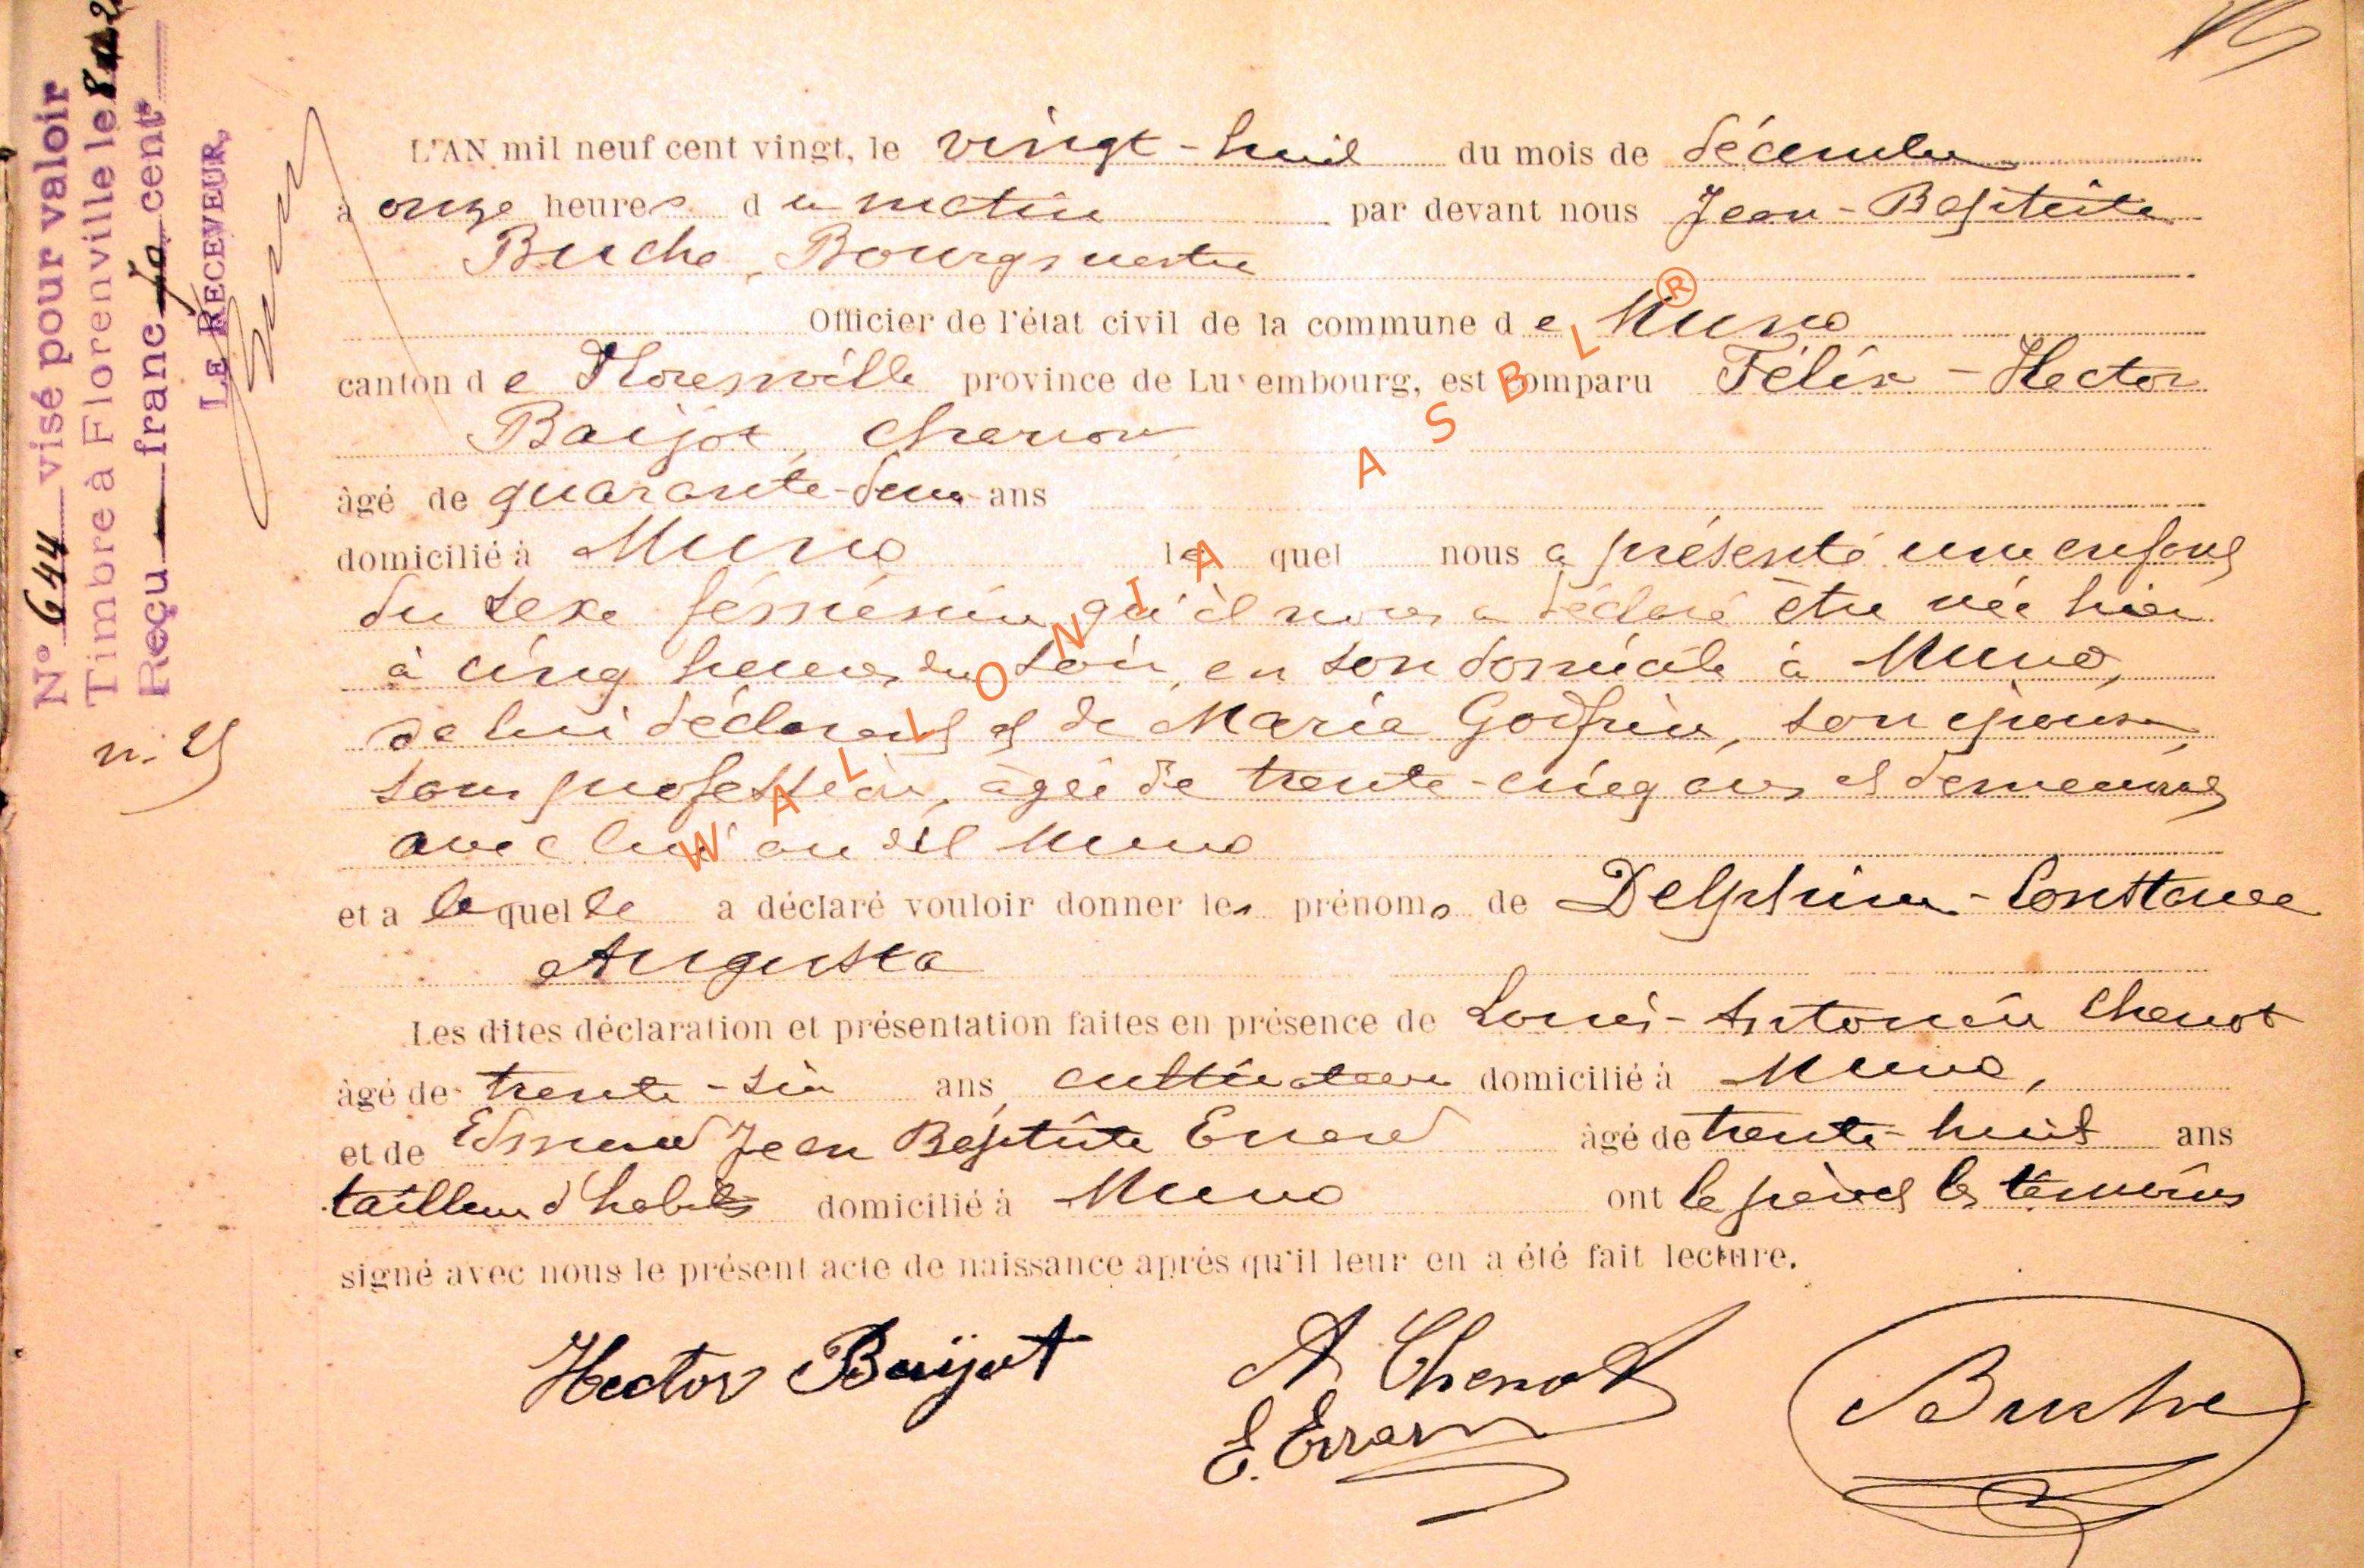 N° 644 visé pour valoir
Timbre à Florenville le
Reçu franc cent
LE RECEVEUR,
L'AN mil neuf cent vingt, le vingt-huit du mois de décembre
à onze heures du matin par devant nous Jean-Baptiste
Buche, Bourgmestre
Officier de l'état civil de la commune de Muno
canton de Florenville province de Luxembourg, est comparu Félix-Hector
Baijot, charron
âgé de quarante-deux ans
domicilié à Muno lequel nous a présenté une enfant
du sexe féminin qu'il nous a déclaré être née hier
à cinq heures du soir, en son domicile à Muno,
de lui déclarant et de Maria Godfrin, son épouse,
sans profession, âgée de trente-cinq ans et demeurant
avec lui au dit Muno
et a laquelle a déclaré vouloir donner les prénoms de Delphine-Constance
Augusta
Les dites déclaration et présentation faites en présence de Louis-Antonin Chenot
âgé de trente-six ans, cultivateur domicilié à Muno,
et de Edmond Jean Baptiste Errard âgé de trente-huit ans
tailleur d'habits domicilié à Muno ont le père et les témoins
signé avec nous le présent acte de naissance après qu'il leur en a été fait lecture.
Hector Baijot A Chenot Buche
E. Errard
WALLONIA ASBL ®